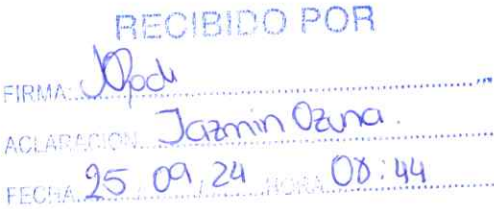 RECIBIDO POR
FIRMA:
ACLARACION Jazmin Ozuna.
FECHA 25 09 / 24 HORA 08:44